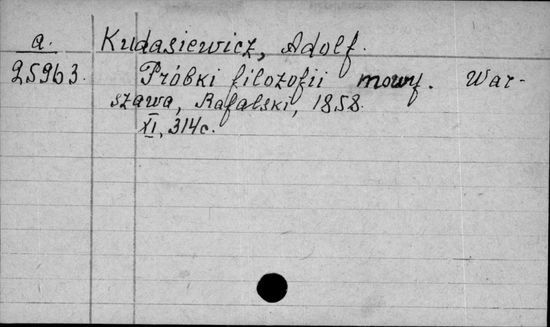 a. Kudasiewicz, Adolf.
25963. Próbki filozofii mowy. War-
szawa, Rafalski, 1858.
XI, 314c.